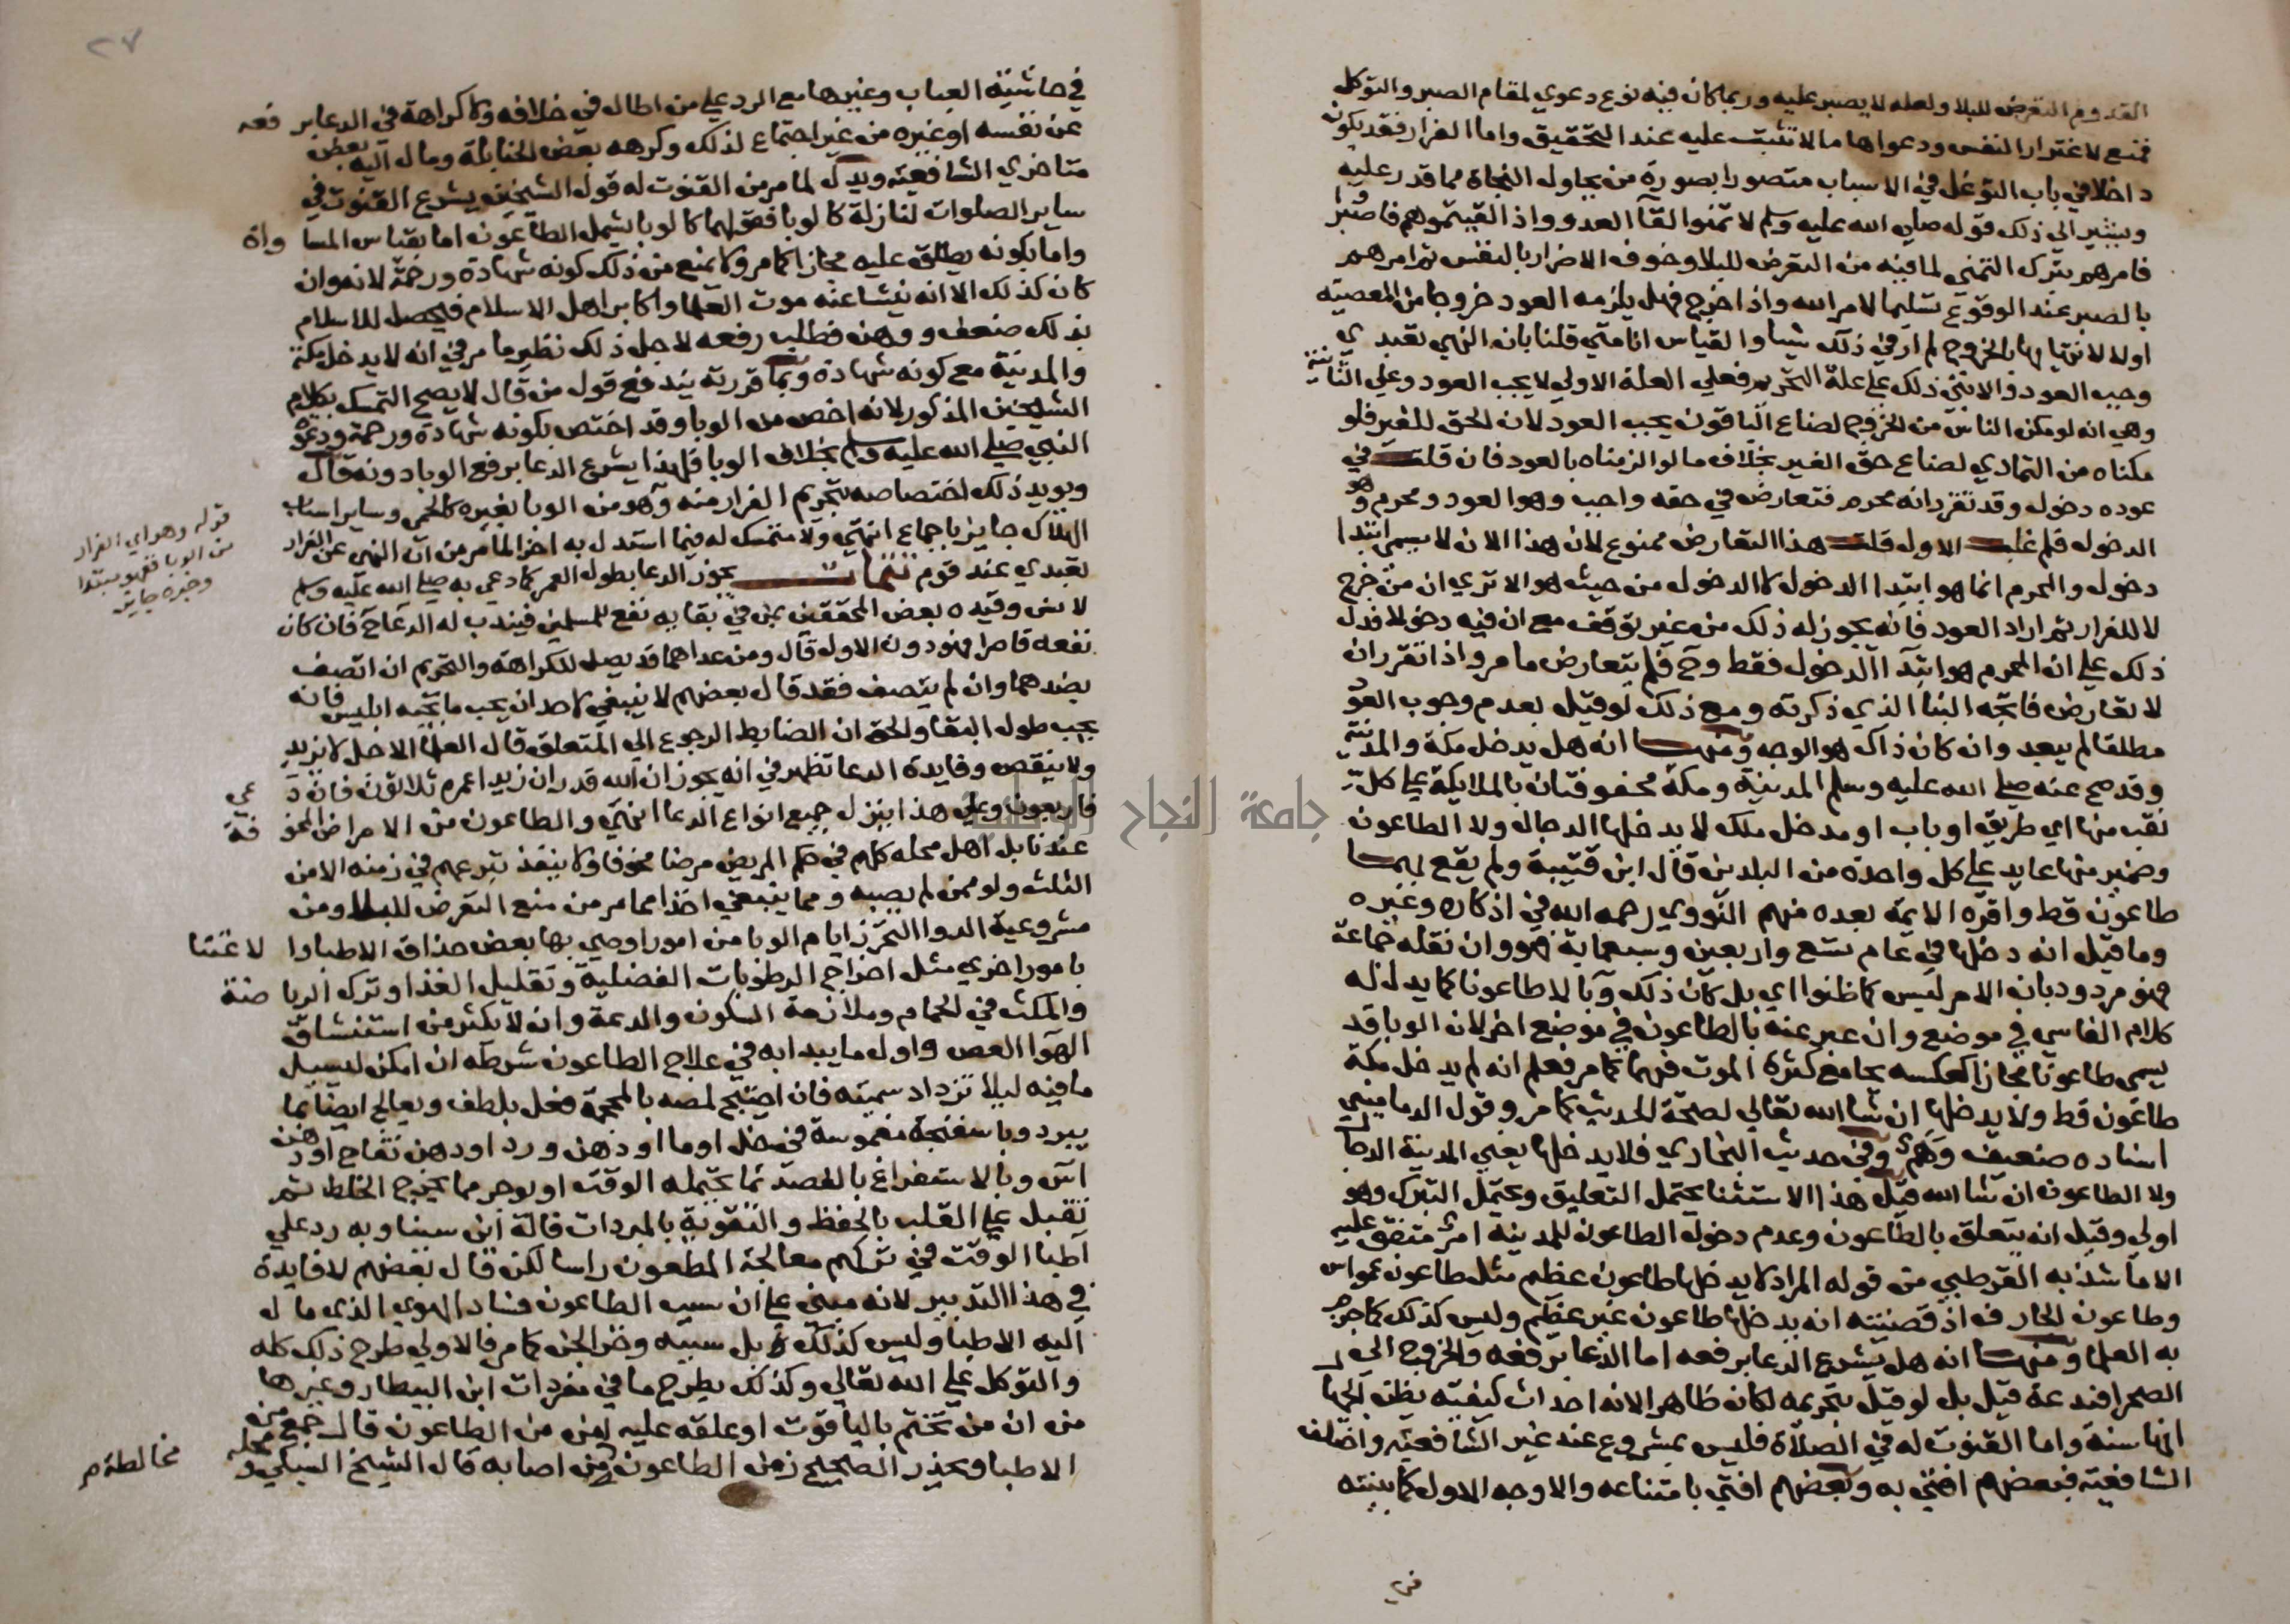 القدوم التعرض للبلا ولعله لا يصبر عليه وربما كان فيه نوع دعوي لمقام الصبر والتوكل
فمنع لاغترار النفس ودعواها ما لا تثبت عليه عند التحقيق واما الفرار فقد يكون
داخلا في باب التوغل في الاسباب متصورا بصورة من يحاول النجاة مما قدر عليه
ويشير الي ذلك قوله صلي الله عليه وسلم لا تمنوا لقآ العدو واذا لقيتموهم فاصبروا
فامرهم بترك التمني لما فيه من التعرض للبلا وخوف الاضرار بالنفس ثم امرهم
بالصبر عند الوقوع تسليما لامر الله واذا خرج فهل يلزمه العود خروجا من المعصية
اولا لانتهايها بالخروج لم ار في ذلك شيا والقياس انا متي قلنا بان النهي تعبدي
وجب العود والا انبني ذلك علي علة التحريم فعلي العلة الاولي لا يجب العود وعلي الثانية
وهي انه لو مكن الناس من الخروج لضاع الباقون يجب العود لان الحق للغير فلو
مكناه من التمادي لضاع حق الغير بخلاف ما لو الزمناه بالعود فان قلت في
عوده دخول وقد تقرر انه محرم فتعارض في حقه واجب وهو العود ومحرم وهو
الدخول فلم غلب الاول قلت هذا التعارض ممنوع لان هذا الان لا يسمي ابتدا
دخول والمحرم انما هو ابتدا الدخول لا الدخول من حيث هو الا تري ان من خرج
لا للفرار ثم اراد العود فانه يجوز له ذلك من غير توقف مع ان فيه دخولا فدل
ذلك علي ان المحرم هو ابتدآ الدخول فقط وح فلم يتعارض ما مر واذا تقرر ان
لا تعارض فاتجه البنا الذي ذكرته ومع ذلك لو قيل بعدم وجوب العود
مطلقا لم يبعد وان كان ذاك هو الوجه ومنها انه هل يدخل مكة والمدينة
وقد صح عنه صلي الله عليه وسلم المدينة ومكة محفوفتان بالملايكة علي كل
نقب منها اي طريق او باب او مدخل ملك لا يدخلها الدجال ولا الطاعون
وضمير منها عايد علي كل واحدة من البلدين قال ابن قتيبة ولم يقع بهما
طاعون قط واقره الايمة بعده منهم النووي رحمه الله في اذكاره وغيره
وما قيل انه دخلها في عام تسع واربعين وسبعماية فهو وان نقله جماعة
فهو مردود بان الامر ليس كما ظنوا اي بل كان ذلك وبا لا طاعونا كما يدل له
كلام الفاسي في موضع وان عبر عنه بالطاعون في موضع اخر لان الوبا قد
يسمي طاعونا مجازا كعكسه بجامع كثرة الموت فيهما كما مر فعلم انه لم يدخل مكة
طاعون قط ولا يدخلها ان شا الله تعالي لصحة الحديث كما مر وقول الدماميني
اسناده ضعيف وهم وفي حديث البخاري فلا يدخلها يعني المدينة الدجال
ولا الطاعون ان شا الله قيل هذا الاستثنا يحتمل التعليق ويحتمل التبرك وهو
اولي وقيل انه يتعلق بالطاعون وعدم دخول الطاعون للمدينة امر متفق عليه
الا ما شذ به القرطبي من قوله المراد لا يدخلها طاعون عظيم مثل طاعون عمواس
وطاعون الجارف اذ قضيته انه يدخلها طاعون غير عظيم وليس كذلك كما جزم
به العلما ومنها انه هل يشرع الدعا برفعه اما الدعا برفعه والخروج الي
الصحرا فبدعة قيل بل لو قيل بتحريمه لكان ظاهرا لانه احداث كيفية يظن الجهال
انها سنة واما القنوت له في الصلاة فليس بمشروع عند غير الشافعية واختلف
الشافعية فبعضهم افتي به وبعضهم افتي بامتناعه والاوجه الاول كما بينته
في
٢٧
في حاشية العباب وغيرها مع الرد علي من اطال في خلافه ولا كراهة في الدعا برفعه
عن نفسه او غيره من غير اجتماع لذلك وكرهه بعض الحنابلة ومال اليه بعض
متاخري الشافعية ويدل لما مر من القنوت له قول الشيخين يشرع القنوت في
ساير الصلوات لنازلة كالوبا فقولهما كالوبا يشمل الطاعون اما بقياس المساواة
واما بكونه يطلق عليه مجازا كما مر ولا يمنع من ذلك كونه شهادة ورحمة لانه وان
كان كذلك الا انه ينشا عنه موت العلما واكابر اهل الاسلام فيحصل للاسلام
بذلك ضعف ووهن فطلب رفعه لاجل ذلك نظير ما مر في انه لا يدخل مكة
والمدينة مع كونه شهادة وبما قررته يندفع قول من قال لا يصح التمسك بكلام
الشيخين المذكور لانه اخص من الوبا وقد اختص بكونه شهادة ورحمة ودعوة
النبي صلي الله عليه وسلم بخلاف الوبا فلهذا يشرع الدعا برفع الوبا دونه قال
ويويد ذلك اختصاصه بتحريم الفرار منه وهو من الوبا بغيره كالحمي وساير اسباب
الهلاك جايز باجماع انتهي ولا متمسك له فيما استدل به اخرا لما مر من ان النهي عن الفرار
تعبدي عند قوم تتمات يجوز الدعا بطول العمر كما دعي به صلي الله عليه وسلم
لانس وقيده بعض المحققين بمن في بقايه نفع للمسلمين فيندب له الدعا ح فان كان
نفعه قاصرا فهو دون الاول قال ومن عداهما قد يصل للكراهة والتحريم ان اتصف
بضدهما وان لم يتصف فقد قال بعضهم لا ينبغي لاحد ان يحب ما يحبه ابليس فانه
يحب طول البقا والحق ان الضابط الرجوع الي المتعلق قال العلما الاجل لا يزيد
ولا ينقص وفايدة الدعا تظهر في انه يجوز ان الله قدر ان زيدا عمره ثلاثون فان دعي
فاربعون وعلي هذا ينزل جميع انواع الدعا انتهي والطاعون من الامراض المخوفة
عندنا بل اهل محله كلهم في حكم المريض مرضا مخوفا ولا ينفذ تبرعهم في زمنه الا من
الثلث ولو ممن لم يصبه ومما ينبغي اخذا مما مر من منع التعرض للبلا ومن
مشروعية الدوا التحرز ايام الوبا من امور اوصي بها بعض حذاق الاطبا والاعتنا
بامور اخري مثل اخراج الرطوبات الفضلية وتقليل الغذا وترك الرياضة
والمكث في الحمام وملازمة السكون والدعة وان لا يكثر من استنشاق
الهوا العفن واول ما يبدا به في علاج الطاعون شرطه ان امكن ليسيل
ما فيه ليلا تزداد سميته فان احتيج لمصه بالمحجمة فعل بلطف ويعالج ايضا بما
يبرد وباسفنجة مغموسة في خل او ما او دهن ورد او دهن تفاح او دهن
آس وبالاستفراغ بالفصد بما يحتمله الوقت او يوخر مما يخرج الخلط ثم
تقبل علي القلب بالحفظ والتقوية بالمبردات قاله ابن سينا وبه رد علي
اطبا الوقت في تركهم معالجة المطعون راسا لكن قال بعضهم لا فايدة
في هذا التدبير لانه مبني علي ان سبب الطاعون فساد الهوي الذي مال
اليه الاطبا وليس كذلك بل سببه وخز الجن كما مر فالاولي طرح ذلك كله
والتوكل علي الله تعالي وكذلك يطرح ما في مفردات ابن البيطار وغيرها
من ان من تختم بالياقوت او علقه عليه امن من الطاعون قال جمع من
الاطبا ويحذر الصحيح زمن الطاعون من اصابه قال الشيخ السبكي ومحله
قوله وهو اي الفرار
من الوبا فهو مبتدا
وخبره جايز
مخالطة م
جامعة النجاح الوطنية